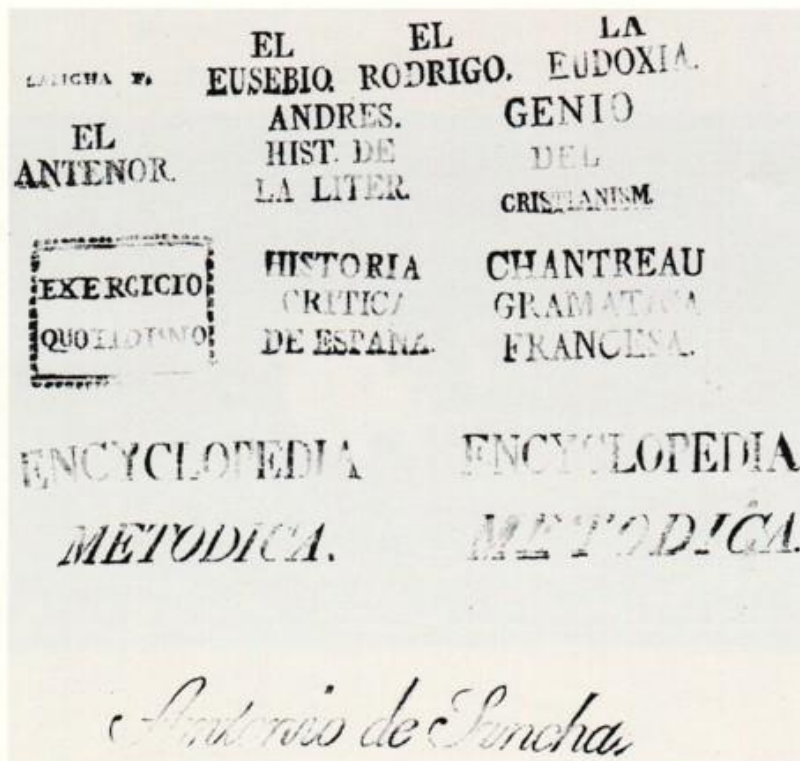 EL EL LA
SANCHA F. EUSEBIO. RODRIGO. EUDOXIA.
EL
ANTENOR.
ANDRES.
HIST. DE
LA LITER.
GENIO
DEL
CRISTIANISM.
EXERCICIO
QUOTIDIANO
HISTORIA
CRITICA
DE ESPAÑA.
CHANTREAU
GRAMATICA
FRANCESA.
ENCYCLOPEDIA
METODICA.
ENCYCLOPEDIA
METODICA.
Antonio de Sancha